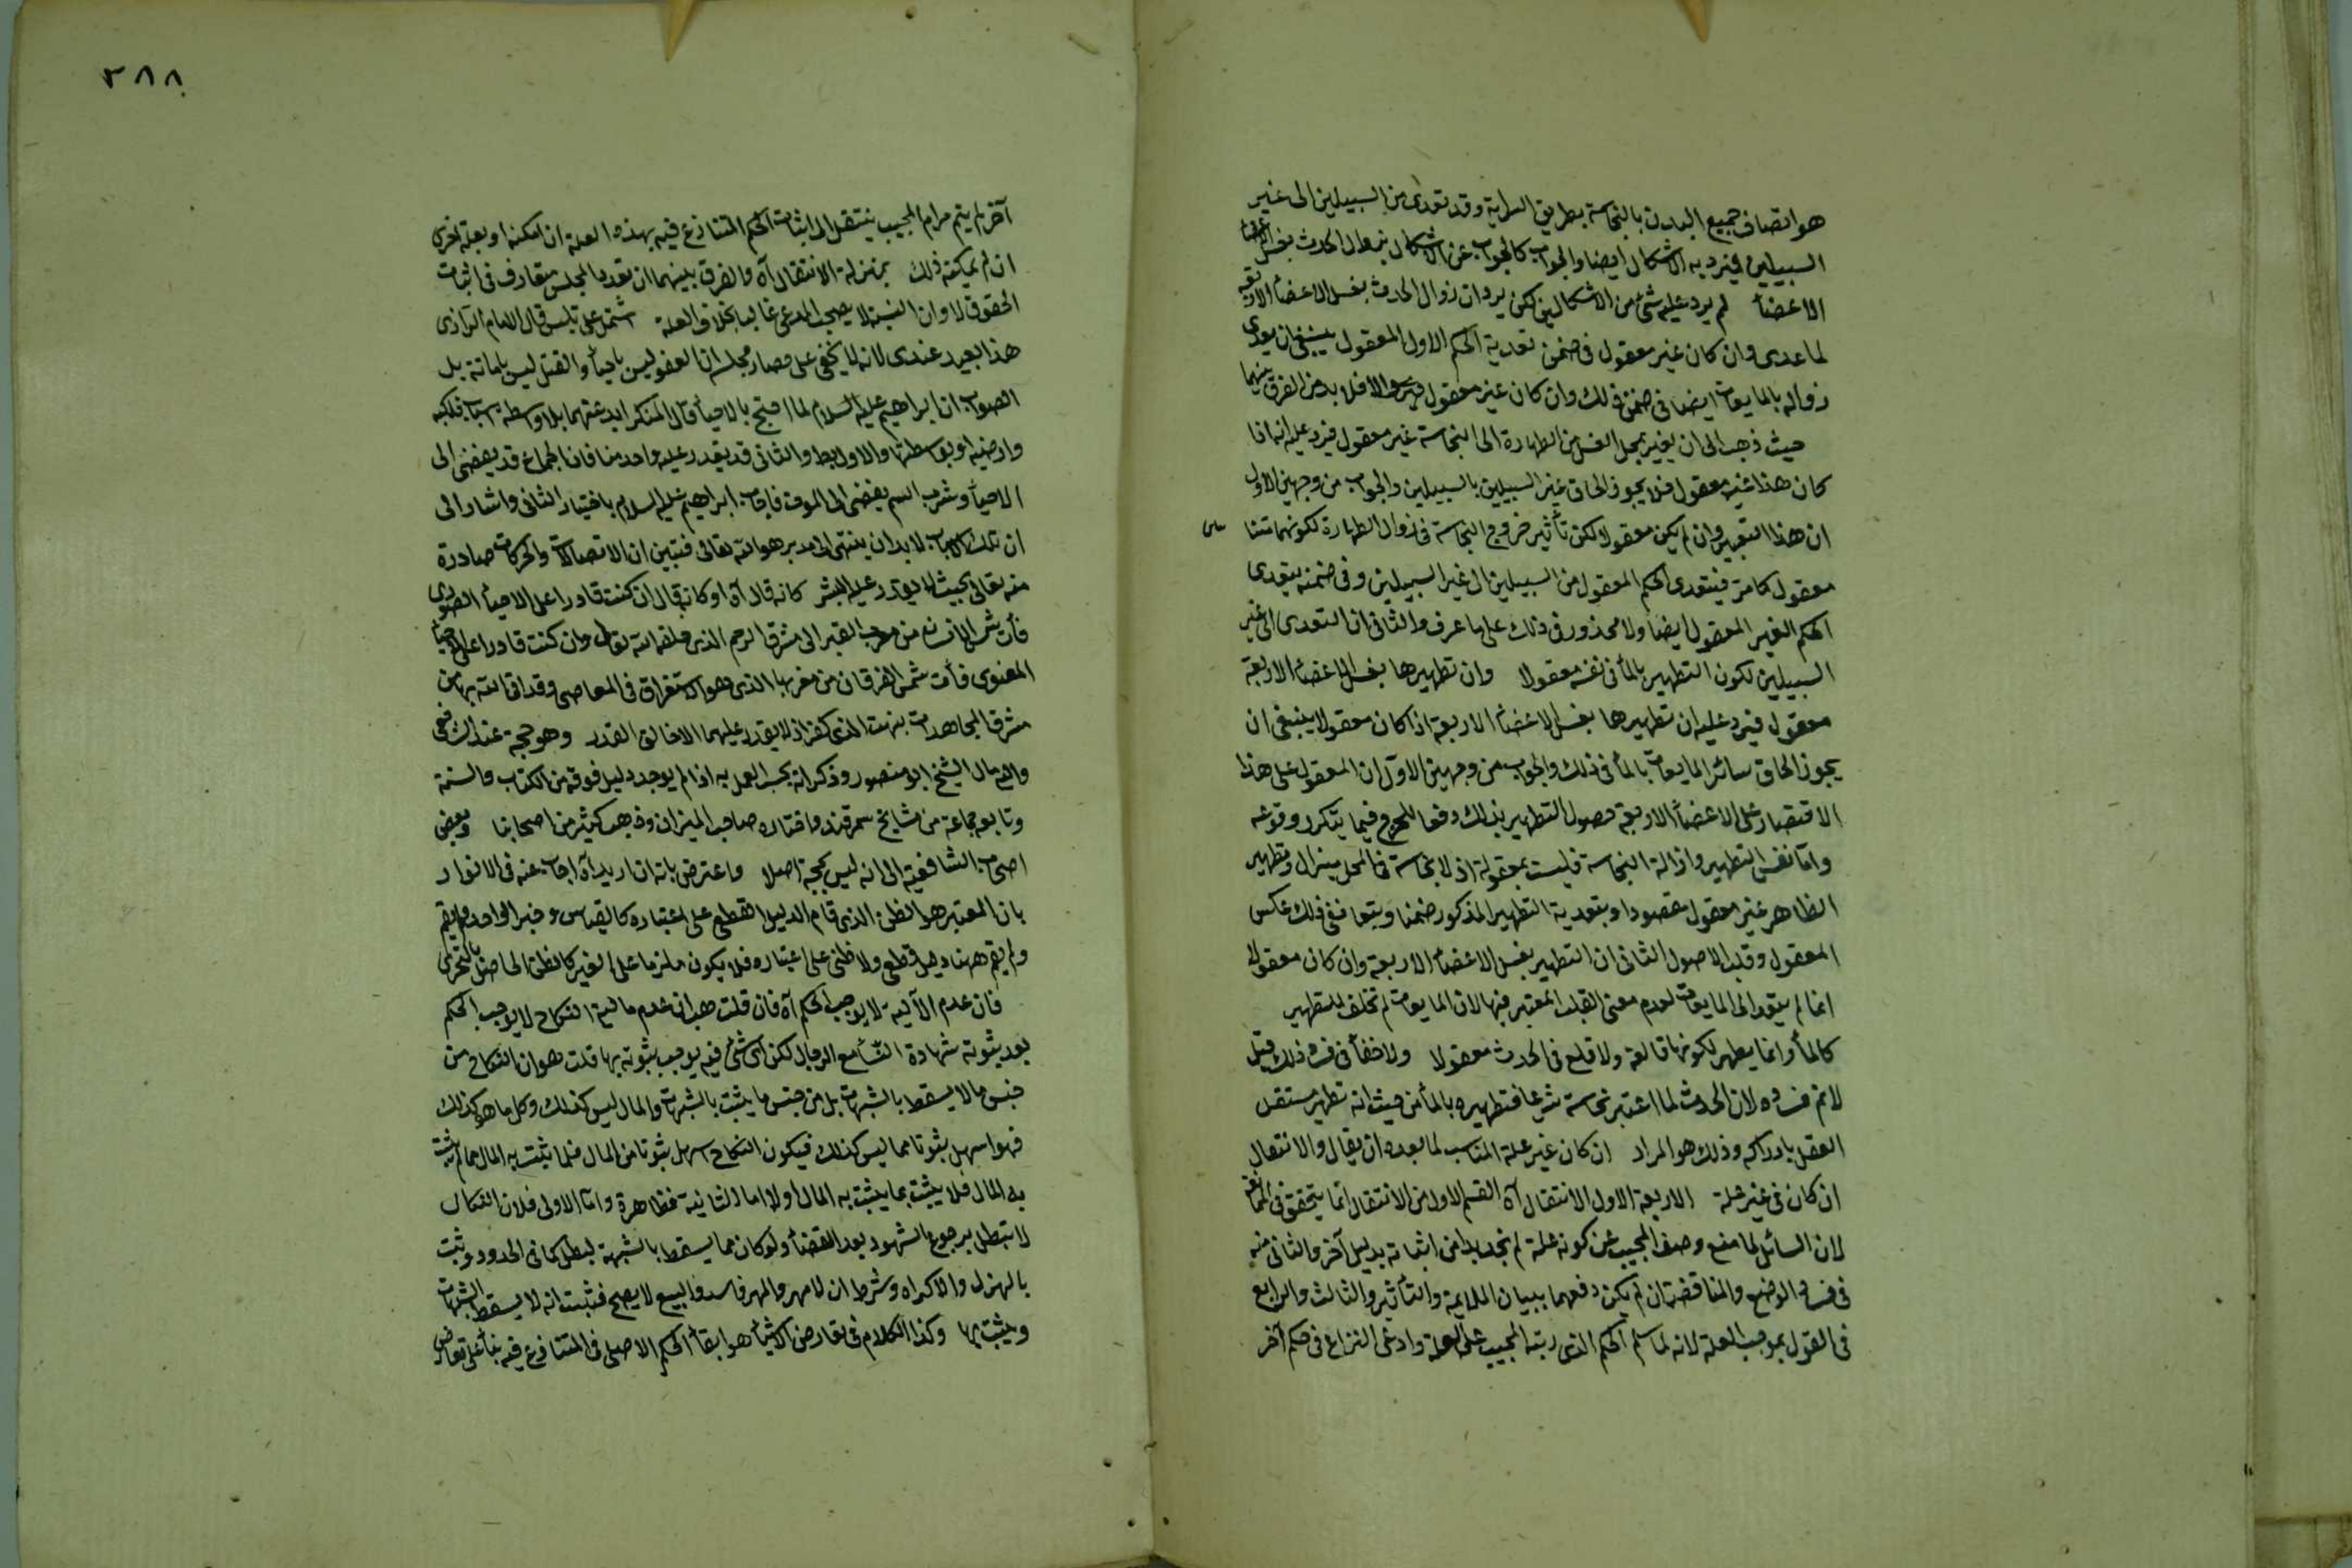 هو اتصاف جميع البدن بالنجاسة بطريق السراية وقد تعدى من السبيلين الى غير
السبيلين فيرد به الاشكال ايضا والجواب كالجواب عن الاشكال بزوال الحدث بغسل الاعضاء
الاعضاء لم يرد عليه شئ من الاشكالين لكن يرد ان زوال الحدث بغسل الاعضاء الاربعة
لما عدى وان كان غير معقول فى ضمن تعدية الحكم الاول المعقول ينبغى ان يعدى
زواله بالمايعات ايضا فى ضمن ذلك وان كان غير معقول والا فلا بد من الفرق بينهما
حيث ذهب الى ان تغيير محل الغسل من الطهارة الى النجاسة غير معقول فيرد عليه انه اذا
كان هذا غير معقول فلا يجوز الحاق غير السبيلين بالسبيلين والجواب من وجهين الاول
ان هذا التغيير وان لم يكن معقولا لكن تأثير خروج النجاسة فى زوال الطهارة لكونهما متنا
معقول كما مر فيتعدى الحكم المعقول من السبيلين الى غير السبيلين وفى ضمنه يتعدى
الحكم الغير المعقول ايضا ولا محذور فى ذلك على ما عرف والثانى ان التعدى الى غير
السبيلين لكون التطهير بالماء فى نفسه معقولا وان تطهيرها بغسل الاعضاء الاربعة
معقول فيرد عليه ان تطهيرها بغسل الاعضاء الاربعة اذا كان معقولا ينبغى ان
يجوز الحاق سائر المايعات بالماء فى ذلك والجواب من وجهين الاول ان المعقول على هذا
الاقتصار على الاعضاء الاربعة حصول التطهير بذلك دفعا للحرج فيما يتكرر وقوعه
واما نفس التطهير وازالة النجاسة فليست بمعقولة اذ لا نجاسة فى المحل يزال وتطهير
الظاهر غير معقول مقصودا وبتعدية التطهير المذكور ضمنا وتبعا ففى ذلك عكس
المعقول وقلب الاصول الثانى ان التطهير بغسل الاعضاء الاربعة وان كان معقولا
انما لم يتعد الى المايعات لعدم معنى القلع المعتبر فيها لان المايعات لم تخلق للتطهير
كالماء وانما يطهر لكونها قالعة ولا قلع فى الحدث معقولا ولا خفاء فى فساد ذلك قيل
لا نم فساده لان الحدث لما اعتبر نجاسة شرعا فتطهيره بالماء من حيث انه تطهير مستقل
العقل بادراكه وذلك هو المراد ان كان غير علة المناسب لما بعده ان يقال والانتقال
ان كان فى غير علة الاربعة الاول الانتقال آه القسم الاول من الانتقال انما يتحقق فى الممانعة
لان السائل لما منع وصف المجيب عن كونه علة لم يجد بدا من اثباته بدليل آخر والثانى منه
فى فساد الوضع والمناقضة ان لم يكن دفعهما ببيان الملايمة والتأثير والثالث والرابع
فى القول بموجب العلة لانه لما سلم الحكم الذى رتبه المجيب على العلة وادعى النزاع فى حكم آخر
٣٨٨
آخر لم يتم مرام المجيب ينتقل الى اثبات الحكم المتنازع فيه بهذه العلة ان امكنه او بعلة اخرى
ان لم يمكنه ذلك بمنزلة الانتقال آه والفرق بينهما ان تعدد المجلس متعارف فى اثبات
الحقوق لا وان البينة لا يصحب المدعى غالبا بخلاف العلة اشتمل على تلبس قال الامام الرازى
هذا بعيد عندى لانه لا يخفى على حضار مجلسه ان العفو ليس باحياء والقتل ليس باماتة بل
الصواب ان ابراهيم عليه السلام لما احتج بالاحياء قال المنكر ابدعتهما بلا واسطة اسباب فلكية
وارضية او بواسطتها والاول بط والثانى قد يقدر عليه واحد منا فان الجماع قد يفضى الى
الاحياء وشرب السم يفضى الى الموت فاجاب ابراهيم عليه السلام باختيار الثانى واشار الى
ان تلك الاسباب لابد ان ينتهى الى مدبر هو الله تعالى فتبين ان الاتصالات والحركات صادرة
منه تعالى بحيث لا يقدر عليه البشر كانه قال آه او كانه قال ان كنت قادرا على الاحياء الصورى
فأت شمس الانسان من مغرب القبر الى مشرق الرحم الذى خلقه الله تعالى وان كنت قادرا على الاحياء
المعنوى فأت شمس الفرقان من مغربها الذى هو الاستغراق فى المعاصى وقد اتى الله بها من
مشرق المجاهدات فبهت الذى كفر اذ لا يقدر عليهما الا خالق القدر وهو حجة عند الشافعى
واليه مال الشيخ ابو منصور وذكر انه يجب العمل به اذا لم يوجد دليل فوقه من الكتاب والسنة
وتابعه جماعة من مشايخ سمرقند واختاره صاحب الميزان وذهب كثير من اصحابنا وبعض
اصحاب الشافعى الى انه ليس بحجة اصلا واعترض بانه ان اريد آه اجاب عنه فى الانوار
بان المعتبر هو الظن الذى قام الدليل القطعى على اعتباره كالقياس وخبر الواحد ولم يقم
ولم يقم ههنا دليل قطعى ولا ظنى على اعتباره فلا يكون ملزما على الغير كالظن الحاصل بالتحرى
فان عدم الآلية لا يوجب الحكم آه فان قلت هب ان عدم مالية النكاح لا يوجب الحكم
بعد ثبوته شهادة النساء مع الرجال لكن اى شئ فيه يوجب ثبوته بها قلت هو ان النكاح من
جنس ما لا يسقط بالشبهات بل من جنس ما يثبت بالشبهات والمال ليس كذلك وكل ما هو كذلك
فهو اسهل ثبوتا مما ليس كذلك فيكون النكاح اسهل ثبوتا من المال فلما ثبت به المال مما لم يثبت
به المال فلا يثبت بما يثبت به المال اولا اما الثانية فظاهرة واما الاولى فلان النكاح
لا تبطل برجوع الشهود بعد القضاء ولو كان مما يسقط بالشبهة لبطل كما فى الحدود وثبت
بالهزل والاكراه وشرط ان لا مهر والمهر فاسد والبيع لا يصح فثبت انه لا يسقط بالشبهات
ويثبت بها وكذا الكلام فى تعارض الاشباه هو ابقاء الحكم الاصلى فى المتنازع فيه بناء على تعارض